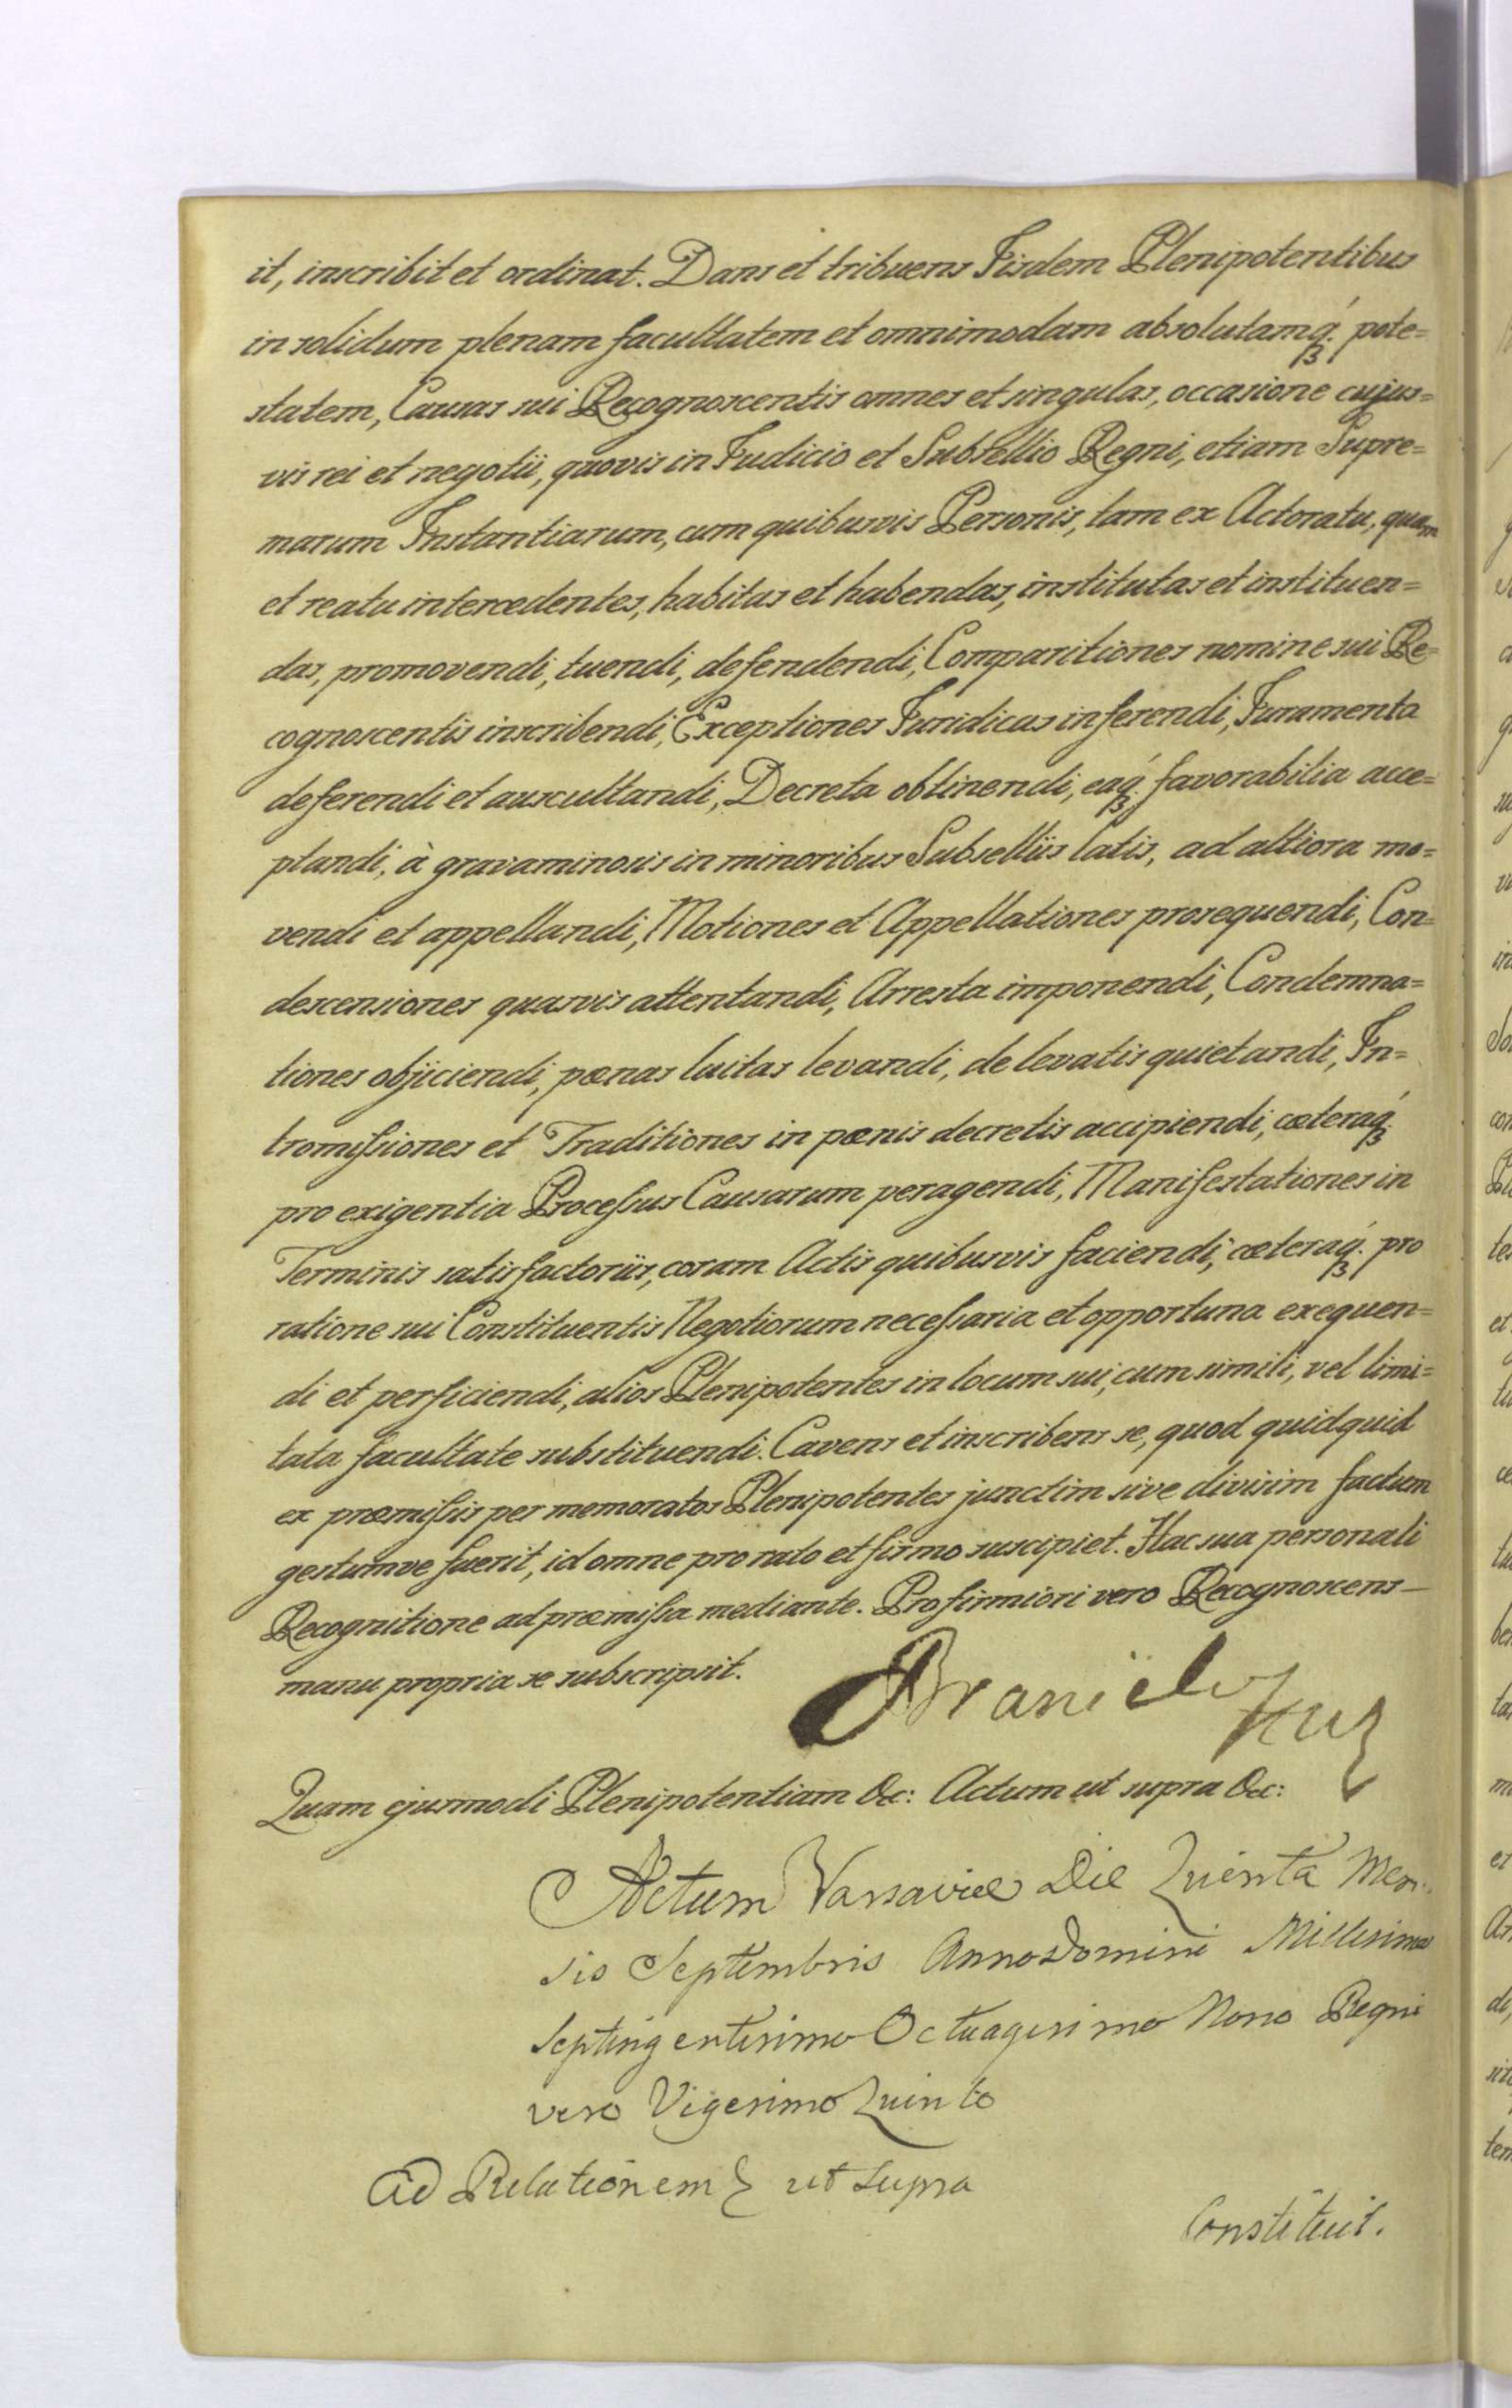 it, inscribit et ordinat. Dans et tribuens Iisdem Plenipotentibus
in solidum plenam facultatem et omnimodam absolutamq́ꝫ pote=
statem, Causas sui Recognoscentis omnes et singulas, occasione cujus=
vis rei et negotii, quovis in Judicio et Subsellio Regni, etiam Supre=
marum Instantiarum, cum quibusvis Personis, tam ex Actoratu, quam
et reatu intercedentes, habitas et habendas, institutas et instituen=
das, promovendi, tuendi, defendendi, Comparitiones nomine sui Re=
cognoscentis inscribendi, Exceptiones Juridicas inferendi, Juramenta
deferendi et auscultandi, Decreta obtinendi, eaq́ꝫ favorabilia acce=
ptandi, à gravaminosis in minoribus Subselliis latis, ad altiora mo=
vendi et appellandi, Motiones et Appellationes prosequendi, Con=
descensiones quasvis attentandi, Arresta imponendi, Condemna=
tiones objiciendi, pœnas luitas levandi, de levatis quietandi, In=
tromiſsiones et Traditiones in pœnis decretis accipiendi, cæteraq́ꝫ
pro exigentia Proceſsus Causarum peragendi, Manifestationes in
Terminis satisfactoriis, coram Actis quibusvis faciendi, cæteraq́ꝫ pro
ratione sui Constituentis Negotiorum neceſsaria et opportuna exequen=
di et perficiendi, alios Plenipotentes in locum sui, cum simili, vel limi=
tata facultate substituendi. Cavens et inscribens se, quod quidquid
ex præmiſsis per memoratos Plenipotentes junctim sive divisim factum
gestumve fuerit, id omne pro rato et firmo suscipiet. Hac sua personali
Recognitione ad præmiſsa mediante. Pro firmiori vero Recognoscens—
manu propria se subscripsit.
Quam ejusmodi Plenipotentiam &c: Actum ut supra &c:
Actum Varsaviæ Die Quinta Men=
sis Septembris Anno Domini Millesimo
Septingentesimo Octuagesimo Nono Regni
vero Vigesimo Quinto
Ad Relationem ut supra
Constituit.